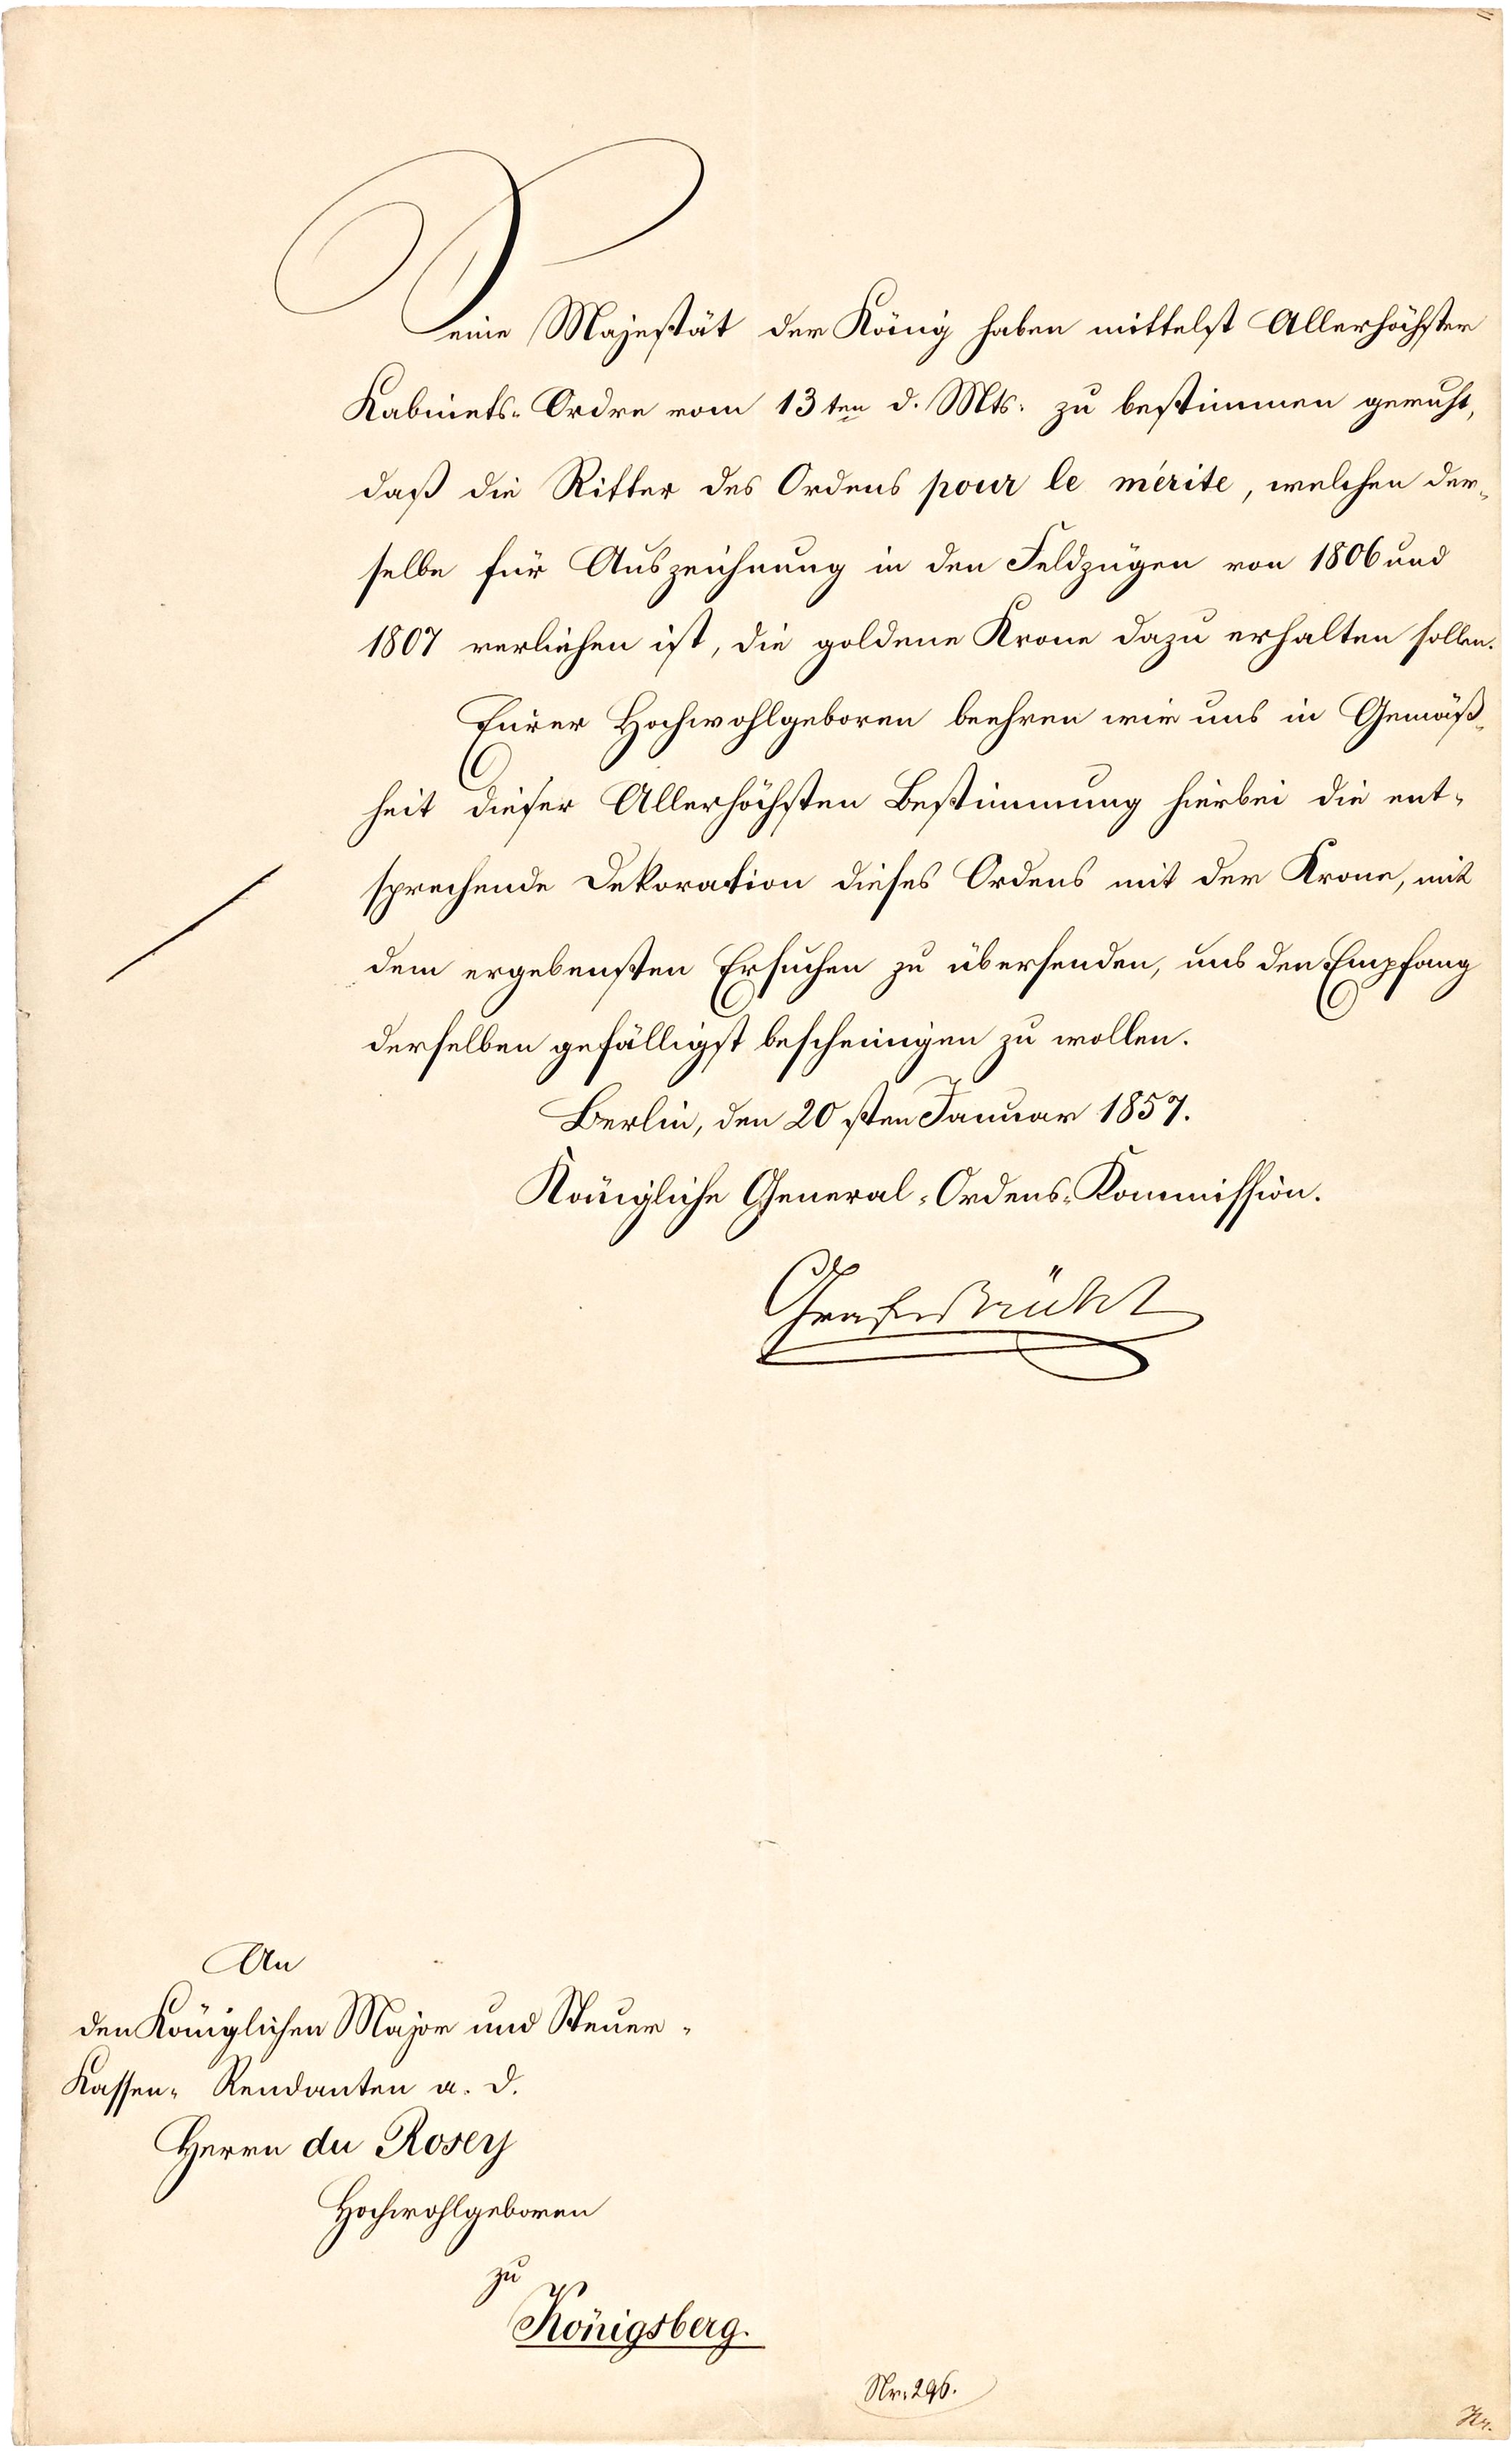 Seine Majestät der König haben mittelst Allerhöchster
Kabinets-Ordre vom 13ten d. Mts. zu bestimmen geruht,
daß die Ritter des Ordens pour le mérite, welchen der-
selbe für Auszeichnung in den Feldzügen von 1806 und
1807 verliehen ist, die goldene Krone dazu erhalten sollen.
Eurer Hochwohlgeboren beehren wir uns in Gemäß-
heit dieser Allerhöchsten Bestimmung hierbei die ent-
sprechende Dekoration dieses Ordens mit der Krone, mit
dem ergebensten Ersuchen zu übersenden, uns den Empfang
derselben gefälligst bescheinigen zu wollen.
Berlin, den 20sten Januar 1857.
Königliche General-Ordens-Kommission.
Graf Brühl
An
den Königlichen Major und Steuer-
Kassen-Rendanten a. D.
Herrn du Rosey
Hochwohlgeboren
zu
Königsberg.
Nr. 296.